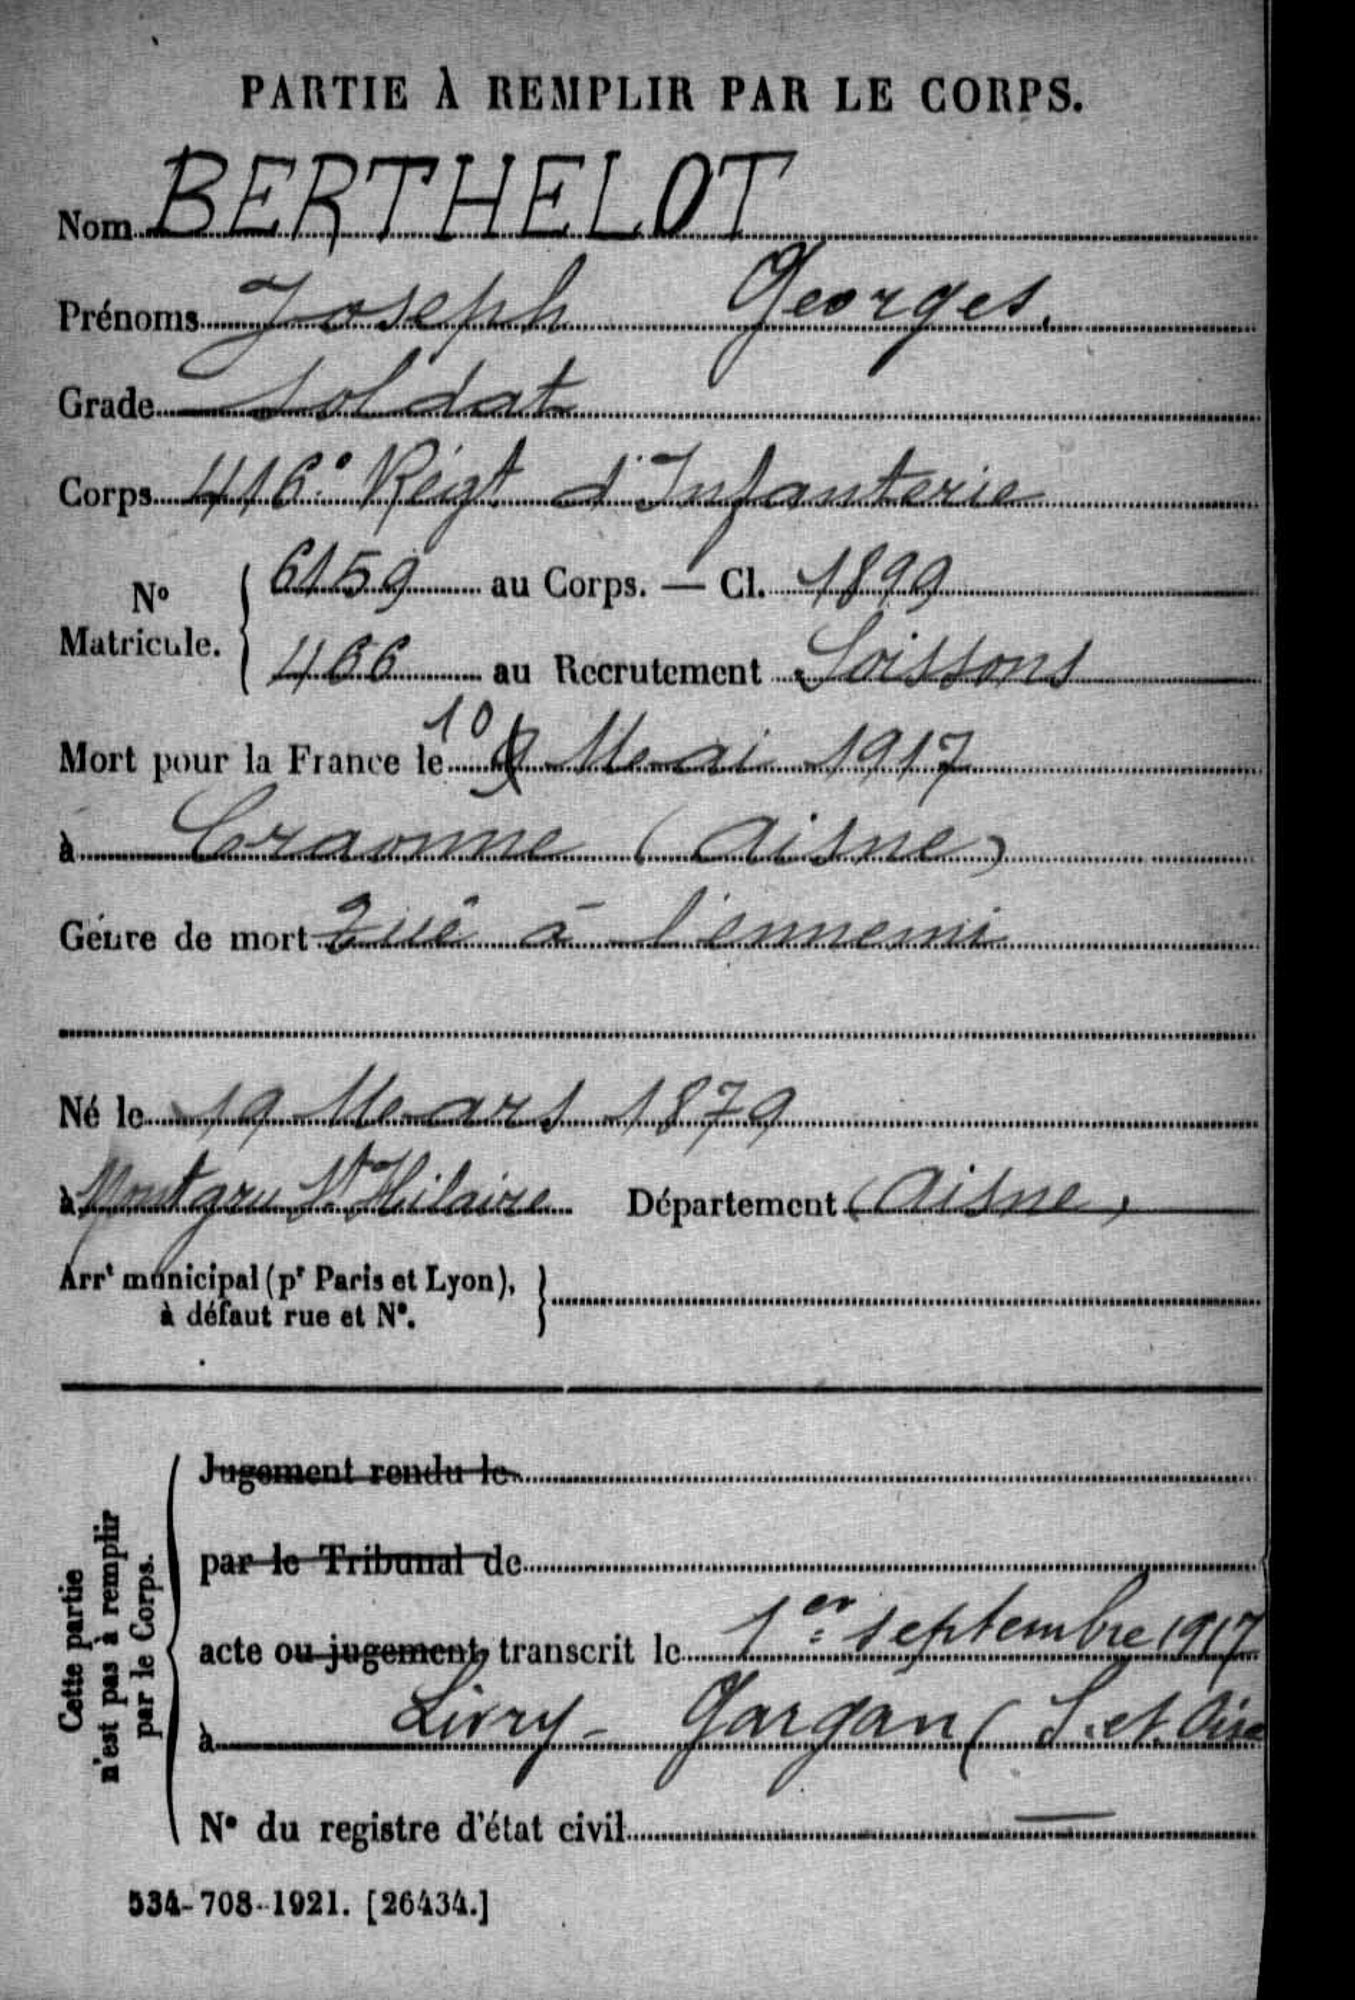 PARTIE À REMPLIR PAR LE CORPS.
Nom BERTHELOT
Prénoms Joseph Georges.
Grade Soldat
Corps 416e Régt d'Infanterie
No Matricule. { 6159 au Corps. — Cl. 1899
466 au Recrutement Soissons
Mort pour la France le 10 9 Mai 1917
à Craonne (Aisne)
Genre de mort Tué à l'ennemi
Né le 19 Mars 1879
à Montgru St Hilaire Département (Aisne)
Arrt municipal (pr Paris et Lyon),
à défaut rue et No.
Cette partie
n'est pas à remplir
par le Corps.
Jugement rendu le
par le Tribunal de
acte ou jugement transcrit le 1er septembre 1917
à Livry-Gargan (S. et Oise
No du registre d'état civil —
534-708-1921. [26434.]